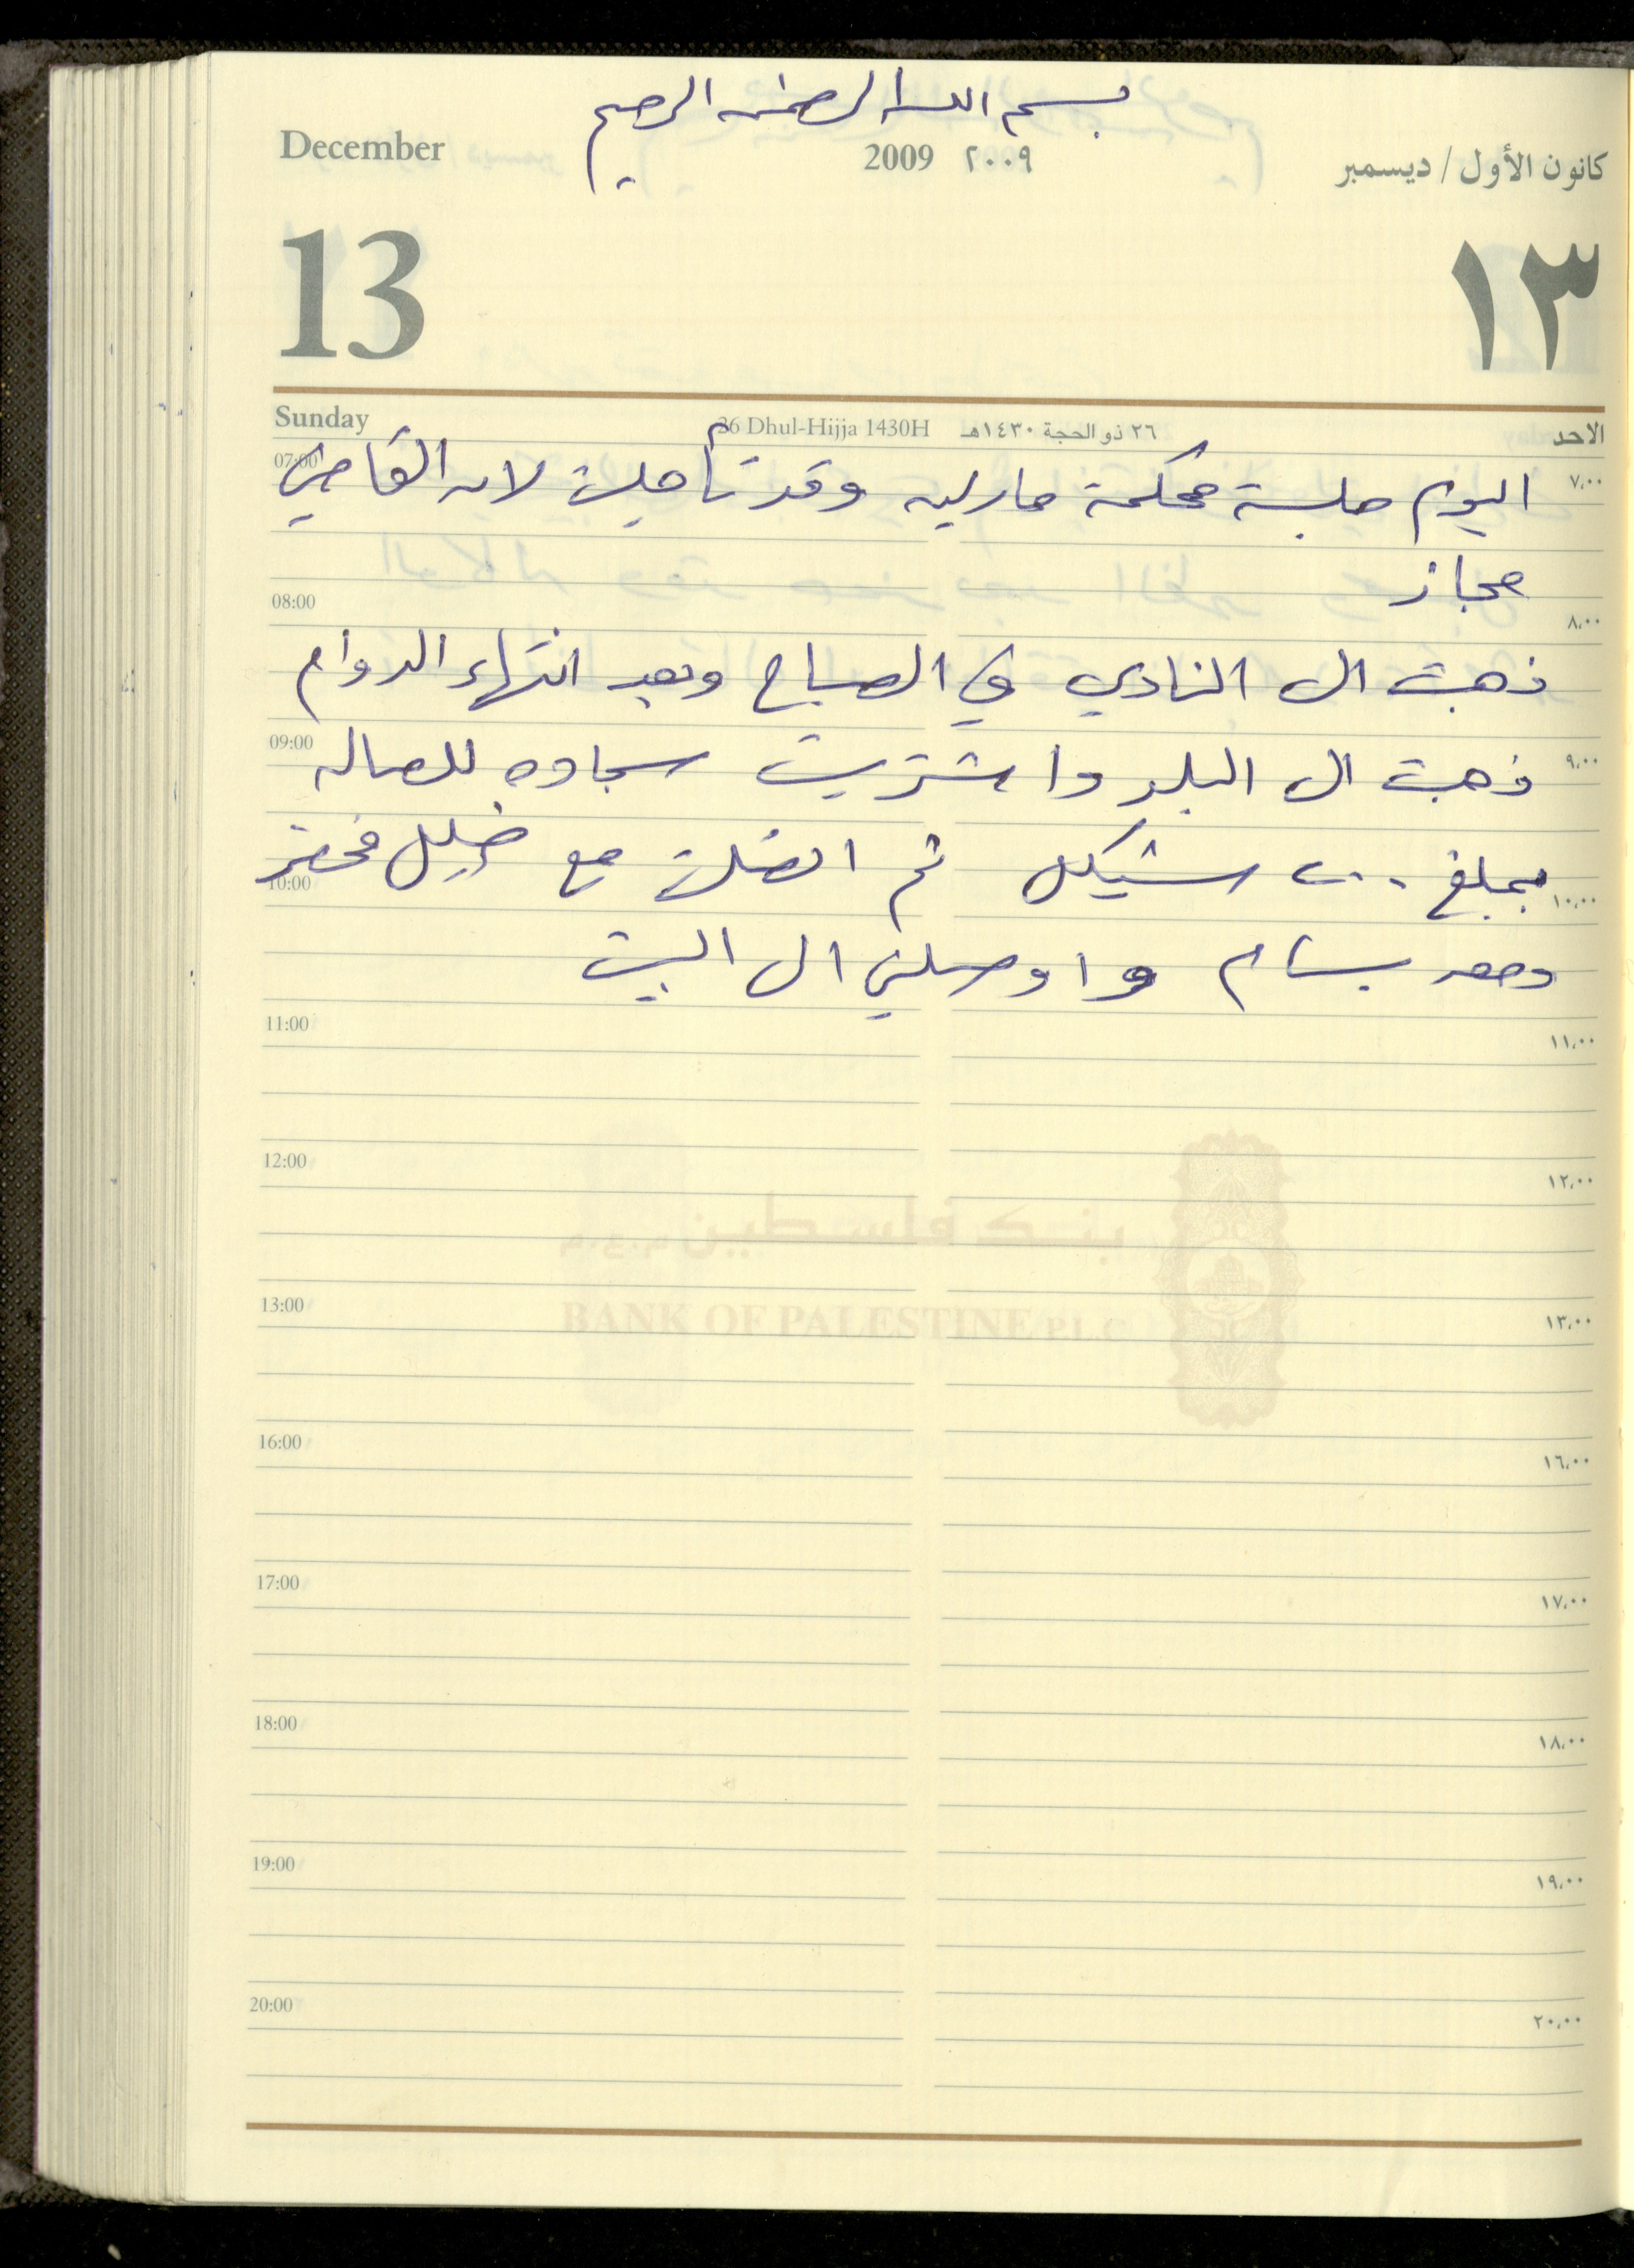 بسم الله الرحمن الرحيم
December 2009 ٢٠٠٩ كانون الأول / ديسمبر
13 ١٣
Sunday 26 Dhul-Hijja 1430H ٢٦ ذو الحجة ١٤٣٠هـ الاحد
07:00 ٧,٠٠
اليوم جلسة محكمة مارلين وقد تأجلت لان القاضي
مجاز
08:00 ٨,٠٠
ذهبت الى النادي في الصباح وبعد انتهاء الدوام
09:00 ٩,٠٠
ذهبت الى البلد واشتريت سجاده للصاله
10:00 ١٠,٠٠
بمبلغ ٢٠٠ شيكل ثم اتصلت مع خليل فحضر
ومعه بسام واوصلني الى البيت
11:00 ١١,٠٠
12:00 ١٢,٠٠
بنك فلسطين
13:00 ١٣,٠٠
BANK OF PALESTINE P.L.C
16:00 ١٦,٠٠
17:00 ١٧,٠٠
18:00 ١٨,٠٠
19:00 ١٩,٠٠
20:00 ٢٠,٠٠